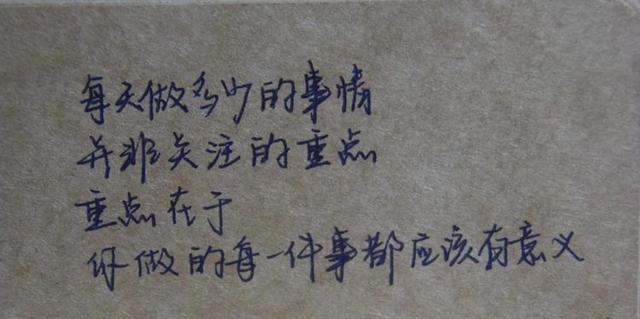 每天做多少的事情
并非关注的重点
重点在于
你做的每一件事都应该有意义